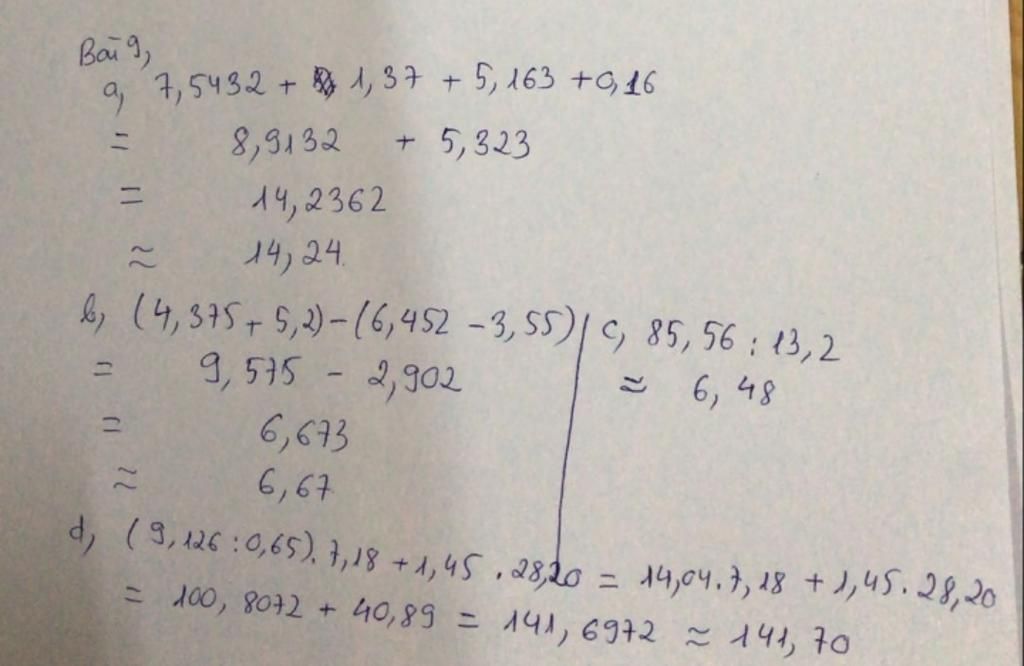 Bài 9,
a, 7,5432 + 1,37 + 5,163 + 0,16
= 8,9132 + 5,323
= 14,2362
≈ 14,24.
b, (4,375 + 5,2) - (6,452 - 3,55)
= 9,575 - 2,902
= 6,673
≈ 6,67
c, 85,56 : 13,2
≈ 6,48
d, (9,126 : 0,65). 7,18 + 1,45 . 28,20 = 14,04.7,18 + 1,45. 28,20
= 100,8072 + 40,89 = 141,6972 ≈ 141,70